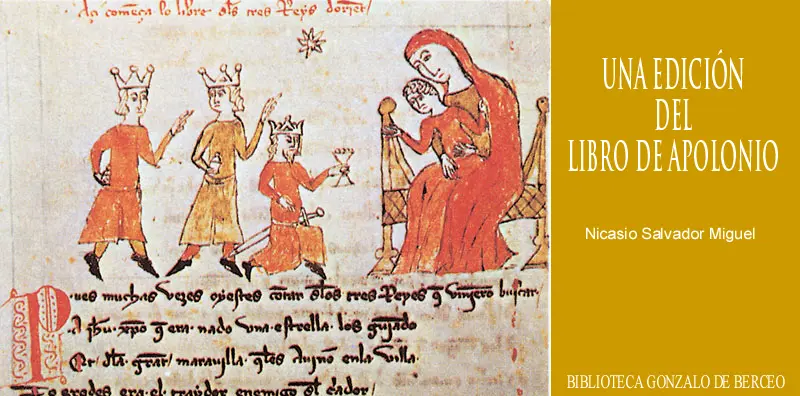 Aq comença lo libre dels tres Reys dorjent
Pues muchas vezes oyestes contar delos tres Reyes q vinjero buscar
A jhu xpo q era nado una estrella los gujado
Et dela grant marauilla qles Avino enla villa
erodes era el traydor enemigo del c̄ador
UNA EDICIÓN
DEL
LIBRO DE APOLONIO
Nicasio Salvador Miguel
BIBLIOTECA GONZALO DE BERCEO